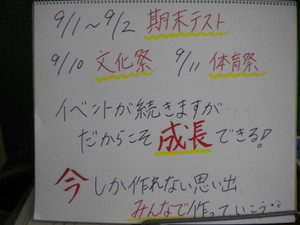 9/1～9/2 期末テスト
9/10 文化祭 9/11 体育祭
イベントが続きますが…
だからこそ成長できる!
今しか作れない思い出
みんなで作っていこう